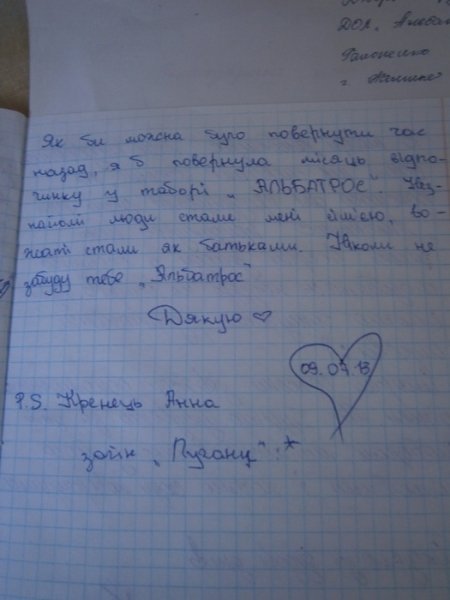 ДОЛ, Алова
Як би можна було повернути час
назад, я б повернула місяць відпо-
чинку у таборі „АЛЬБАТРОС". Нез-
найомі люди стали мені сім'єю, во-
жаті стали як батьками. Ніколи не
забуду тебе „Альбатрос"
Дякую ♡
09.07.13
P.S. Кренець Анна
загін „Пугану" :*